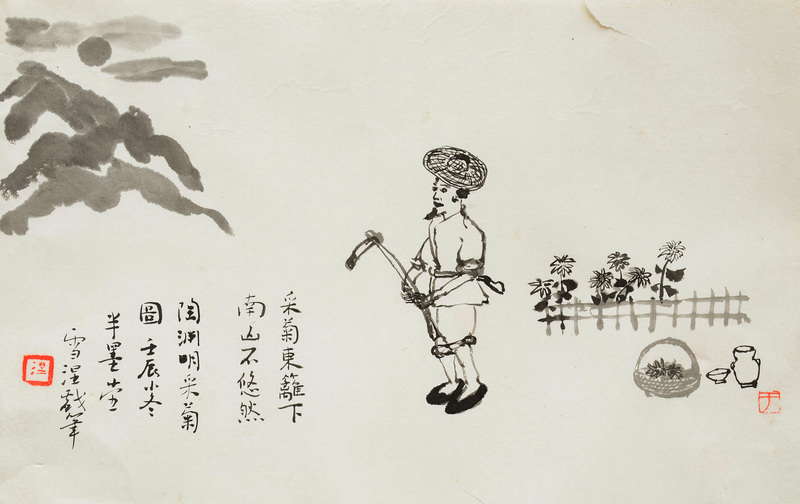 采菊東籬下
南山不悠然
陶渊明采菊
圖壬辰小冬
半墨堂
雪涅戲筆
涅